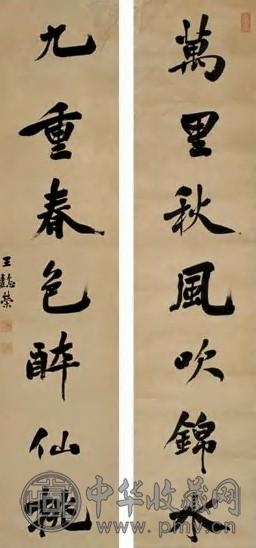 萬里秋風吹錦水
九重春色醉仙桃
王懿榮
中华收藏网
www.pmyv.cn